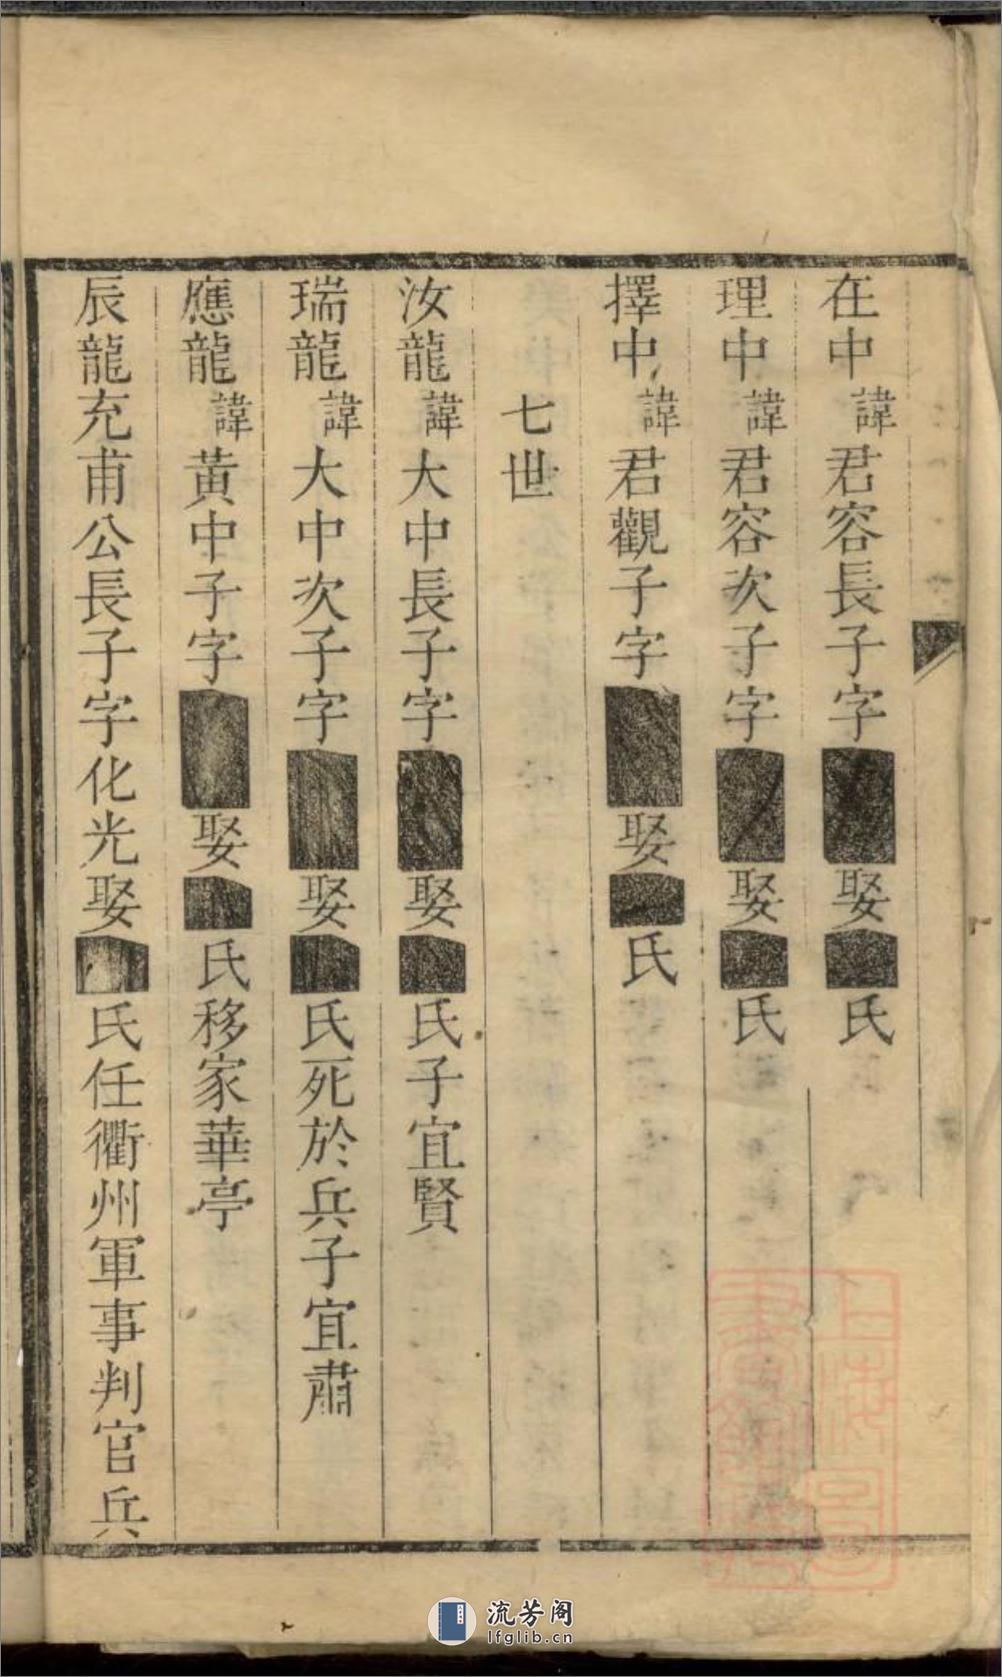 在中諱君容長子字■■娶■氏
理中諱君容次子字■■娶■氏
擇中諱君觀子字■■娶■氏
七世
汝龍諱大中長子字■■娶■氏子宜賢
瑞龍諱大中次子字■■娶■氏死於兵子宜肅
應龍諱黃中子字■■娶■氏移家華亭
辰龍充甫公長子字化光娶■氏任衢州軍事判官兵
上海圖書館藏
流芳阁
lfglib.cn